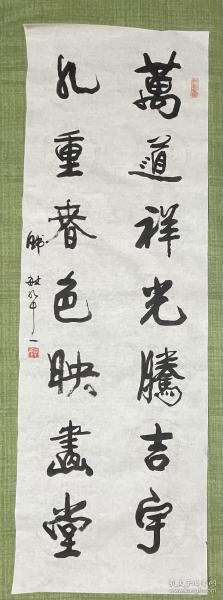 萬道祥光騰吉宇
九重春色映畫堂